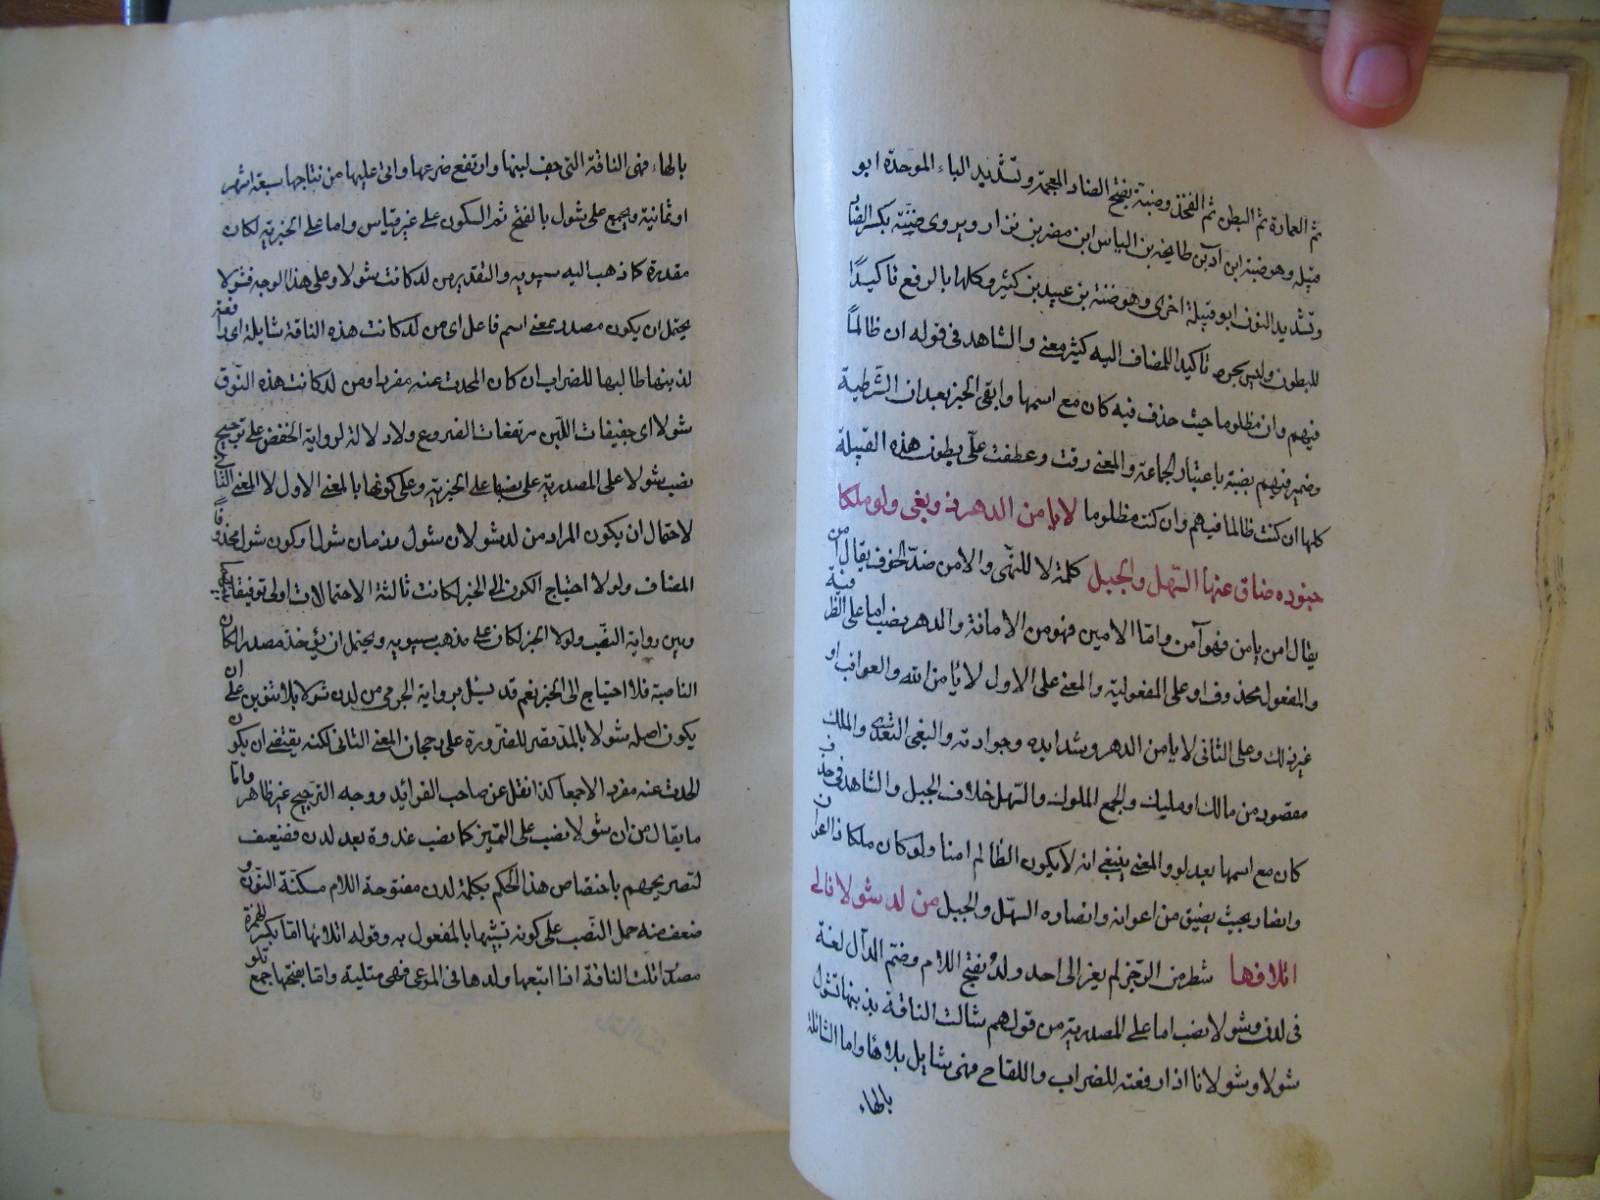 ثم العمارة ثم البطن ثم الفخذ وضبة بفتح الضاد المعجمة وتشديد الباء الموحدة ابو
قبيلة وهو ضبة ابن آد بن طابخة بن الياس ابن مضر بن نزار ويروى ضنة بكسر الضاد
وتشديد النون ابو قبيلة اخرى وهو ضنة بن عبيد بن كثير وكلها بالرفع تاكيدًا
للبطون وليس بجر تاكيد للمضاف اليه كثير معنى والشاهد فى قوله ان ظالمًا
فيهم وان مظلوما حيث حذف فيه كان مع اسمها وابقى الخبر بعد ان الشرطية
وضمير فيهم بضبة باعتبار الجماعة والمعنى رقت وعطفت علىّ بطون هذه القبيلة
كلها ان كنت ظالما فيهم وان كنت مظلوما لا يامن الدهر ذو بغى ولو ملكا
جنوده ضاق عنها السهل والجبل كلمة لا للنهى والامن ضدّ الخوف يقال امن
يقال امن يامن فهو آمن وامّا الامين فهو من الامانة والدهر نصب اما على الظرفية
والمفعول محذوف او على المفعولية والمعنى على الاول لا يامن الله والعواقب او
غير ذلك وعلى الثانى لا يامن الدهر وشدايده وحوادثه والبغى التعدى والملك
مقصور من مالك او مليك والجمع الملوك والسّهل خلاف الجبل والشاهد فى حذف
كان مع اسمها بعد لو والمعنى ينبغى انه لا يكون الظالم امنا ولو كان ملكا ذا اعوان
وانصار بحيث يضيق من اعوانه وانصاره السهل والجبل من لد شولا فالى
اتلافها شطر من الرّجز لم يعز الى احد ولدُ بفتح اللام وضمّ الدّال لغة
فى لدن وشولا نصب اما على المصدرية من قولهم شالت الناقة بذنبها تشول
شولا وشولانا اذا رفعته للضراب واللقاح فهى شايل بلا هاء واما الشائلة
بالهاء
بالهاء فهى الناقة التى جف لبنها وارتفع ضرعها واتى عليها من نتاجها سبعة اشهر
او ثمانية ويجمع على شول بالفتح ثم السكون على غير قياس واما على الخبرية لكان
مقدرة كما ذهب اليه سيبويه والتقدير من لد كانت شولا وعلى هذا الوجه فشولا
يحتمل ان يكون مصدر بمعنى اسم فاعل اى من لد كانت هذه الناقة شايلة اى رافعة
لذنبها طالبها للضراب ان كان المحدث عنه مفردا ومن لد كانت هذه النّوق
شولا اى خفيفات اللبن مرتفعات الضروع ولا دلالة لرواية الخفض على ترجيح
نصب شولا على المصدرية على نصبها على الخبرية وعلى كونها بالمعنى الاول لا المعنى الثانى
لاحتمال ان يكون المراد من لد شولان شول وزمان شول او كون شول محذوفًا
المضاف ولولا احتياج الكون الى الخبر لكانت ثالثة الاحتمالات اولى توفيقا بينها
وبين رواية النصب ولولا الجر لكان على مذهب سيبويه ويحتمل ان يؤخذ مصدر الكان
الناصبة فلا احتياج الى الخبر نعم قد يستدل برواية الجرمى من لدن شولا بلا تنوين على ان
يكون اصله شولا بالمدّ فقصر للضرورة على رجحان المعنى الثانى لكنه يقتضى ان يكون
المحدث عنه مفردا لا جمعا كذا نقل عن صاحب الفرائد ووجه الترجيح غير ظاهر واما
ما يقال من ان شولا نصب على التمييز كما نصب غدوة بعد لدن فضعيف
لتصريحهم باختصاص هذا الحكم بكلمة لدن مفتوحة اللام مسكنة النون و
ضعف منه حمل النّصب على كونه تشبيها بالمفعول به وقوله اتلائها امّا بكسر الهمزة
مصدر اتلت الناقة اذا اتبعها ولدها فى المرعى فهى متلية وامّا بفتحها جمع تلو